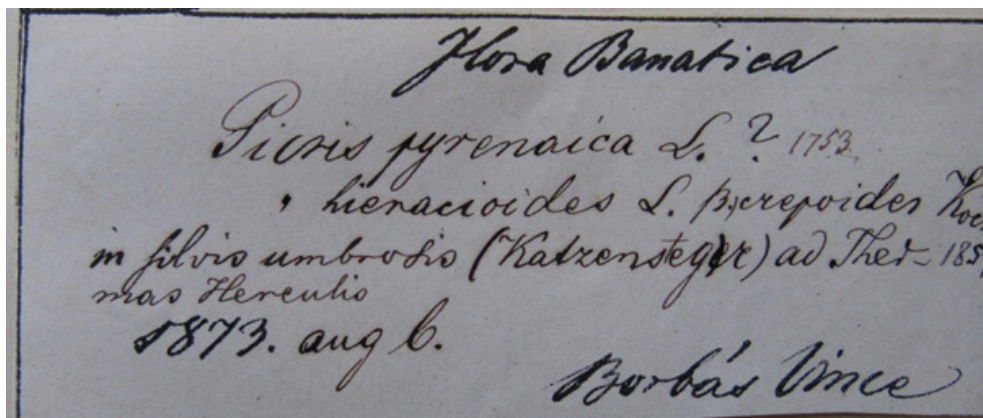 Flora Banatica
Picris pyrenaica L. ? 1753.
" hieracioides L. β, crepoides Koch
in silvis umbrosis (Katzensteger) ad Ther- 185
mas Herculis
1873. aug 6.
Borbás Vince